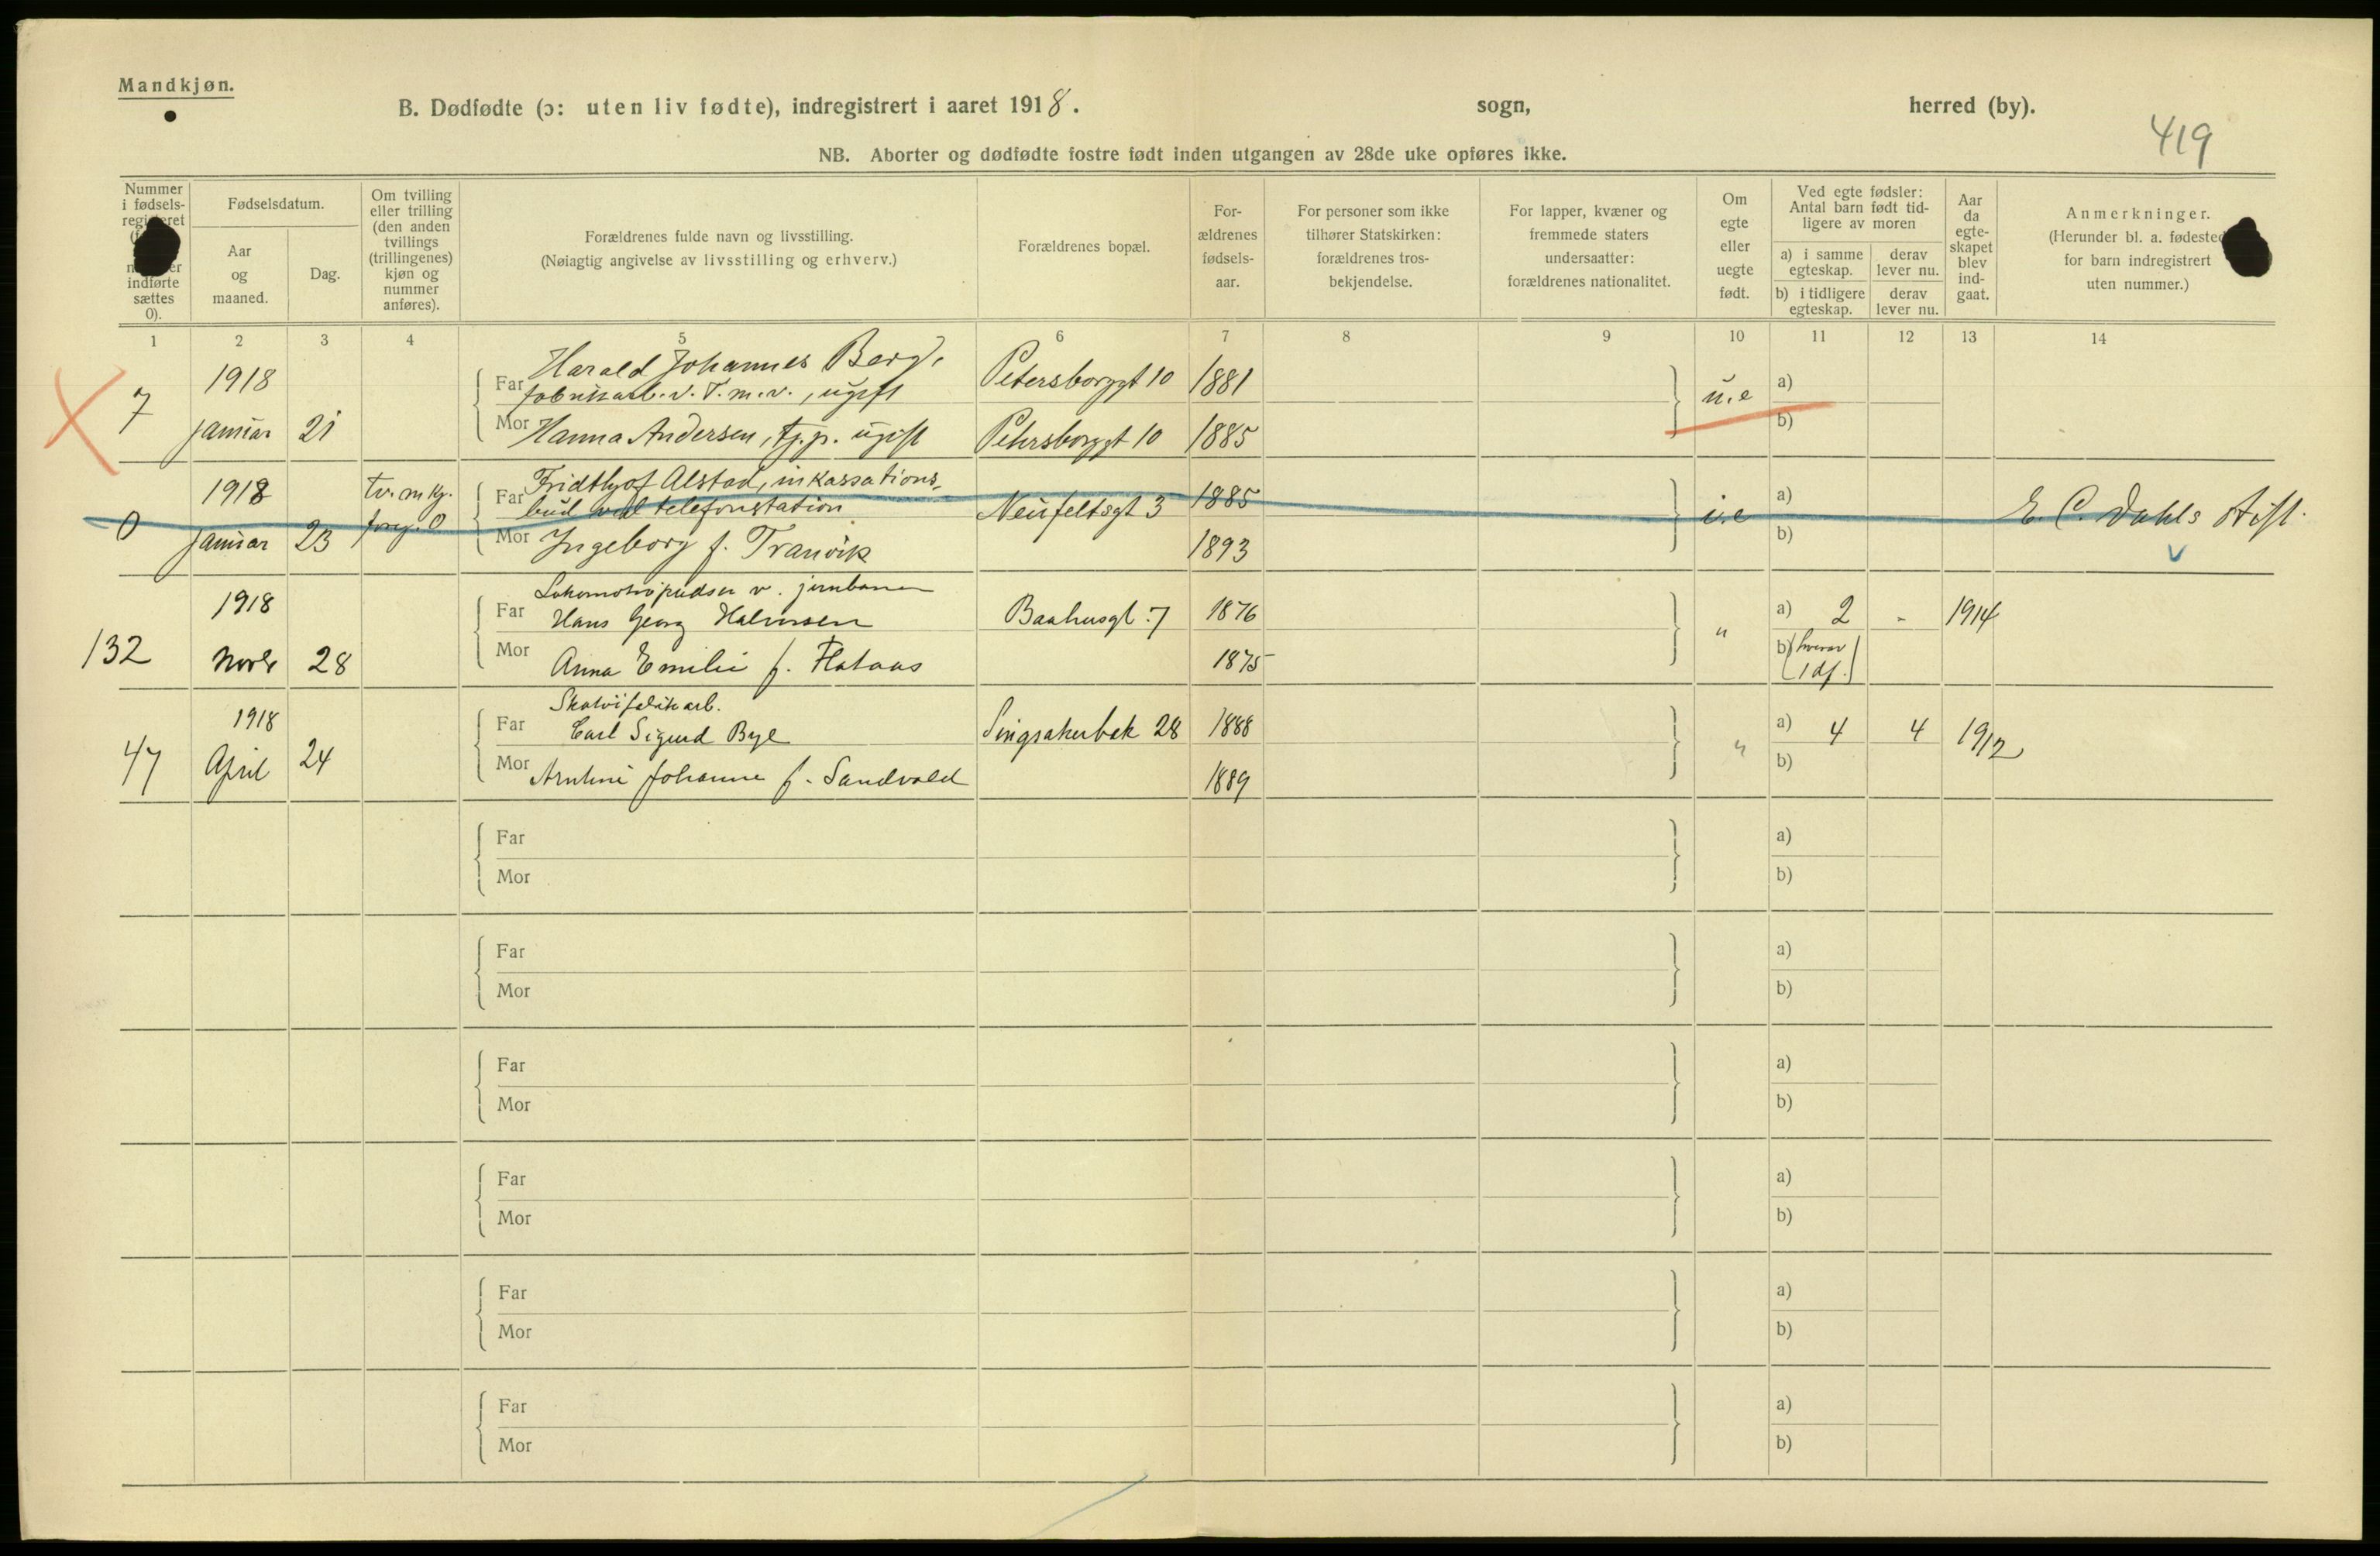 Mandkjøn.
B. Dødfødte (ɔ: uten liv fødte), indregistrert i aaret 1918. sogn, herred (by).
419
NB. Aborter og dødfødte fostre født inden utgangen av 28de uke opføres ikke.
Nummer i fødsels-
indførte sættes 0).
Fødselsdatum.
Aar og maaned.
Dag.
Om tvilling eller trilling (den anden tvillings (trillingenes) kjøn og nummer anføres).
Forældrenes fulde navn og livsstilling.
(Nøiagtig angivelse av livsstilling og erhverv.)
Forældrenes bopæl.
For-ældrenes fødsels-aar.
For personer som ikke tilhører Statskirken: forældrenes tros-bekjendelse.
For lapper, kvæner og fremmede staters undersaatter: forældrenes nationalitet.
Om egte eller uegte født.
Ved egte fødsler: Antal barn født tid-ligere av moren
a) i samme egteskap.
derav lever nu.
b) i tidligere egteskap.
derav lever nu.
Aar da egte-skapet blev ind-gaat.
Anmerkninger.
(Herunder bl. a. fødested
for barn indregistrert
uten nummer.)
1 2 3 4 5 6 7 8 9 10 11 12 13 14
7 1918 januar 21
Far Harald Johannes Berg, Petersborggt 10 1881 u.e a)
fabrikkarb. v. T.m.v., ugift
Mor Hanna Andersen, tj.p. ugift Petersborggt 10 1885 b)
0 1918 januar 23 tv. m kj. forrg. 0
Far Fridthjof Alstad, inkassations-
bud ved telefonstation Neufeltsgt 3 1885 i.e a) E. C. Dahls stift.
Mor Ingeborg f. Tranvik 1893 b)
132 1918 Novbr 28
Lokomotivpudser v. jernbanen
Far Hans Georg Halvorsen Baahusgt. 7 1876 " a) 2 - 1914
Mor Anna Emilie f. Flataas 1875 b) (hvorav 1 df.)
47 1918 April 24
Skotøifabrikarb.
Far Carl Sigurd Bye Singsakerbak 28 1888 " a) 4 4 1912
Mor Johanne f. Sandvold 1889 b)
Far a)
Mor b)
Far a)
Mor b)
Far a)
Mor b)
Far a)
Mor b)
Far a)
Mor b)
Far a)
Mor b)